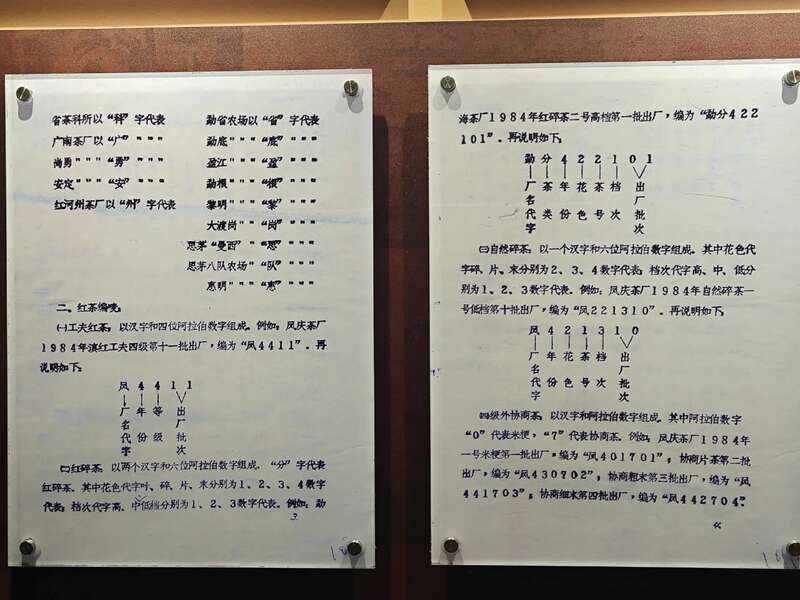 省茶科所以“科”字代表
广南茶厂以“广”" " "
尚勇" " "“勇”" " "
安定" " "“安”" " "
红河州茶厂以“州”字代表
勐省农场以“省”字代表
勐底" "“底”" " "
盈江" "“盈”" " "
勐根" "“根”" " "
黎明" "“黎”" " "
大渡岗" "“岗”" " "
思茅“曼西”"“思”" " "
思茅八队农场"“队”" " "
惠明" "“惠”" " "
二、红茶编唛:
㈠工夫红茶:以汉字和四位阿拉伯数字组成。例如:凤庆茶厂
1984年滇红工夫四级第十一批出厂,编为“凤4411”。再
说明如下:
凤 4 4 1 1
厂 年 等 出
名 厂
代 份 级 批
字 次
㈡红碎茶:以两个汉字和六位阿拉伯数字组成。“分”字代表
红碎茶。其中花色代字叶、碎、片、末分别为1、2、3、4数字
代表;档次代字高、中低档分别为1、2、3数字代表。例如:勐
3
海茶厂1984年红碎茶二号高档第一批出厂,编为“勐分422
101”。再说明如下:
勐 分 4 2 2 1 0 1
厂 茶 年 花 茶 档 出
名 厂
代 类 份 色 号 次 批
字 次
㈢自然碎茶:以一个汉字和六位阿拉伯数字组成。其中花色代
字碎、片、末分别为2、3、4数字代表;档次代字高、中、低分
别为1、2、3数字代表。例如:凤庆茶厂1984年自然碎茶一
号低档第十批出厂,编为“凤221310”。再说明如下:
凤 4 2 1 3 1 0
厂 年 花 茶 档 出
名 厂
代 份 色 号 次 批
字 次
㈣级外协商茶:以汉字和阿拉伯数字组成。其中阿拉伯数字
“0”代表米梗,“7”代表协商茶。例如:凤庆茶厂1984年
一号米梗第一批出厂,编为“凤401701”;协商片茶第二批
出厂,编为“凤430702”;协商粗末第三批出厂,编为“凤
441703”;协商细末第四批出厂,编为“凤442704”。
4